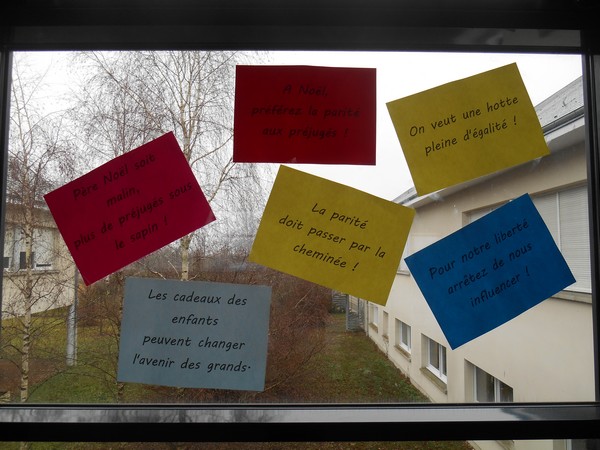 A Noël,
préférez la parité
aux préjugés !
On veut une hotte
pleine d'égalité !
Père Noël soit
malin,
plus de préjugés sous
le sapin !
La parité
doit passer par la
cheminée !
Pour notre liberté
arrêtez de nous
influencer !
Les cadeaux des
enfants
peuvent changer
l'avenir des grands.